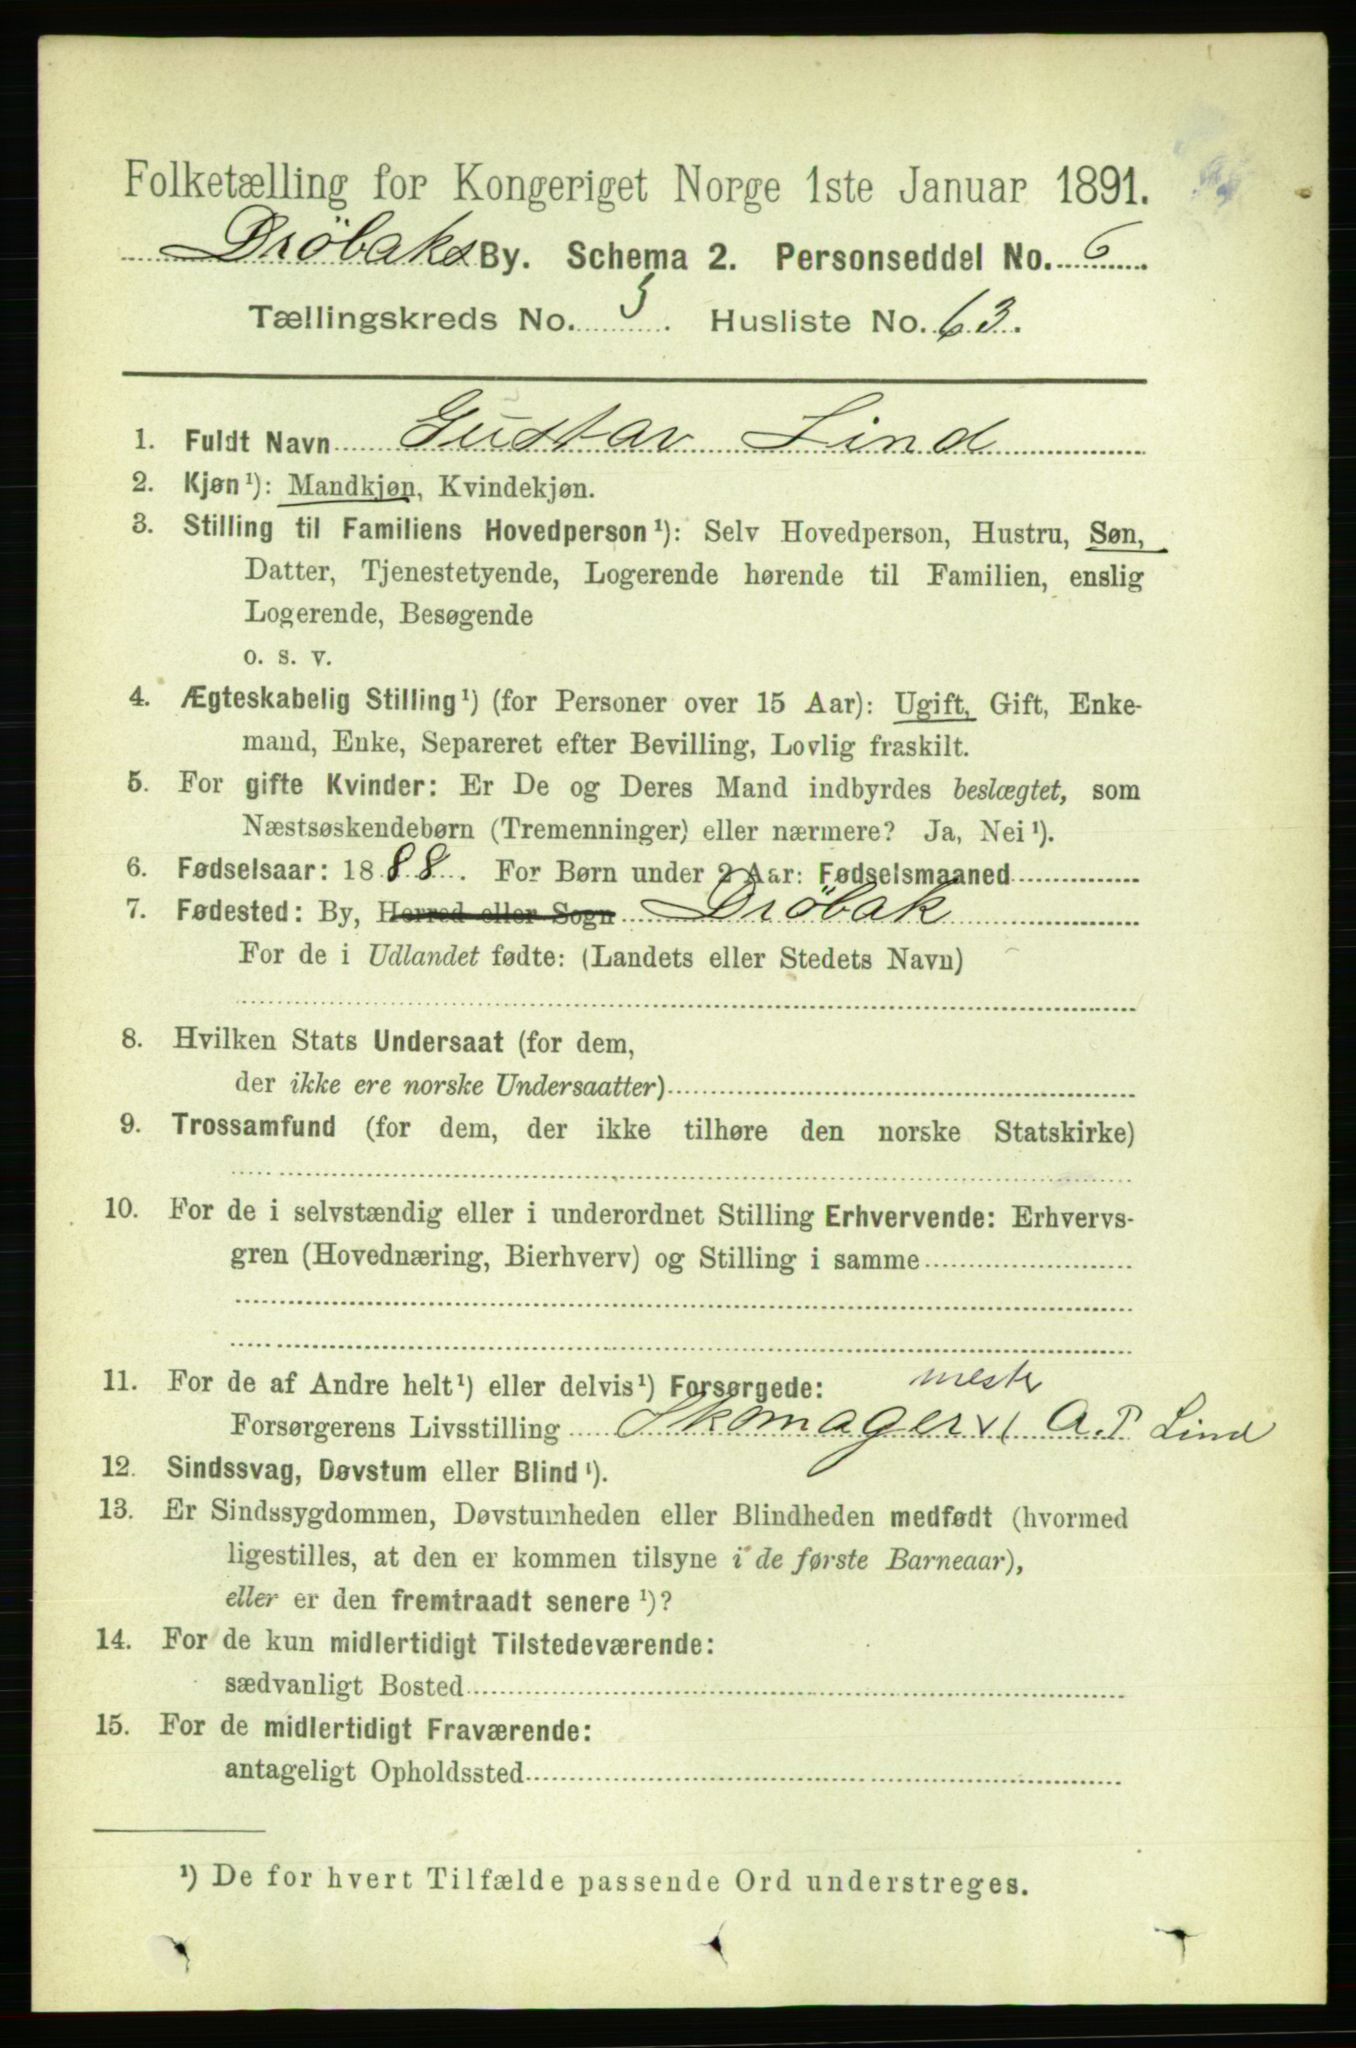 Folketælling for Kongeriget Norge 1ste Januar 1891.
Dröbaks By. Schema 2. Personseddel No. 6
Tællingskreds No. 5. Husliste No. 63.
1. Fuldt Navn Gustav Lind
2. Kjøn¹): Mandkjøn, Kvindekjøn.
3. Stilling til Familiens Hovedperson¹): Selv Hovedperson, Hustru, Søn,
Datter, Tjenestetyende, Logerende hørende til Familien, enslig
Logerende, Besøgende
o. s. v.
4. Ægteskabelig Stilling¹) (for Personer over 15 Aar): Ugift, Gift, Enke-
mand, Enke, Separeret efter Bevilling, Lovlig fraskilt.
5. For gifte Kvinder: Er De og Deres Mand indbyrdes beslægtet, som
Næstsøskendebørn (Tremenninger) eller nærmere? Ja, Nei¹).
6. Fødselsaar: 1888. For Børn under 2 Aar: Fødselsmaaned
7. Fødested: By, Herred eller Sogn Dröbak
For de i Udlandet fødte: (Landets eller Stedets Navn)
8. Hvilken Stats Undersaat (for dem,
der ikke ere norske Undersaatter)
9. Trossamfund (for dem, der ikke tilhøre den norske Statskirke)
10. For de i selvstændig eller i underordnet Stilling Erhvervende: Erhvervs-
gren (Hovednæring, Bierhverv) og Stilling i samme
11. For de af Andre helt¹) eller delvis¹) Forsørgede: mester
Forsørgerens Livsstilling Skomager A.P. Lind
12. Sindssvag, Døvstum eller Blind¹).
13. Er Sindssygdommen, Døvstumheden eller Blindheden medfødt (hvormed
ligestilles, at den er kommen tilsyne i de første Barneaar),
eller er den fremtraadt senere¹)?
14. For de kun midlertidigt Tilstedeværende:
sædvanligt Bosted
15. For de midlertidigt Fraværende:
antageligt Opholdssted
¹) De for hvert Tilfælde passende Ord understreges.